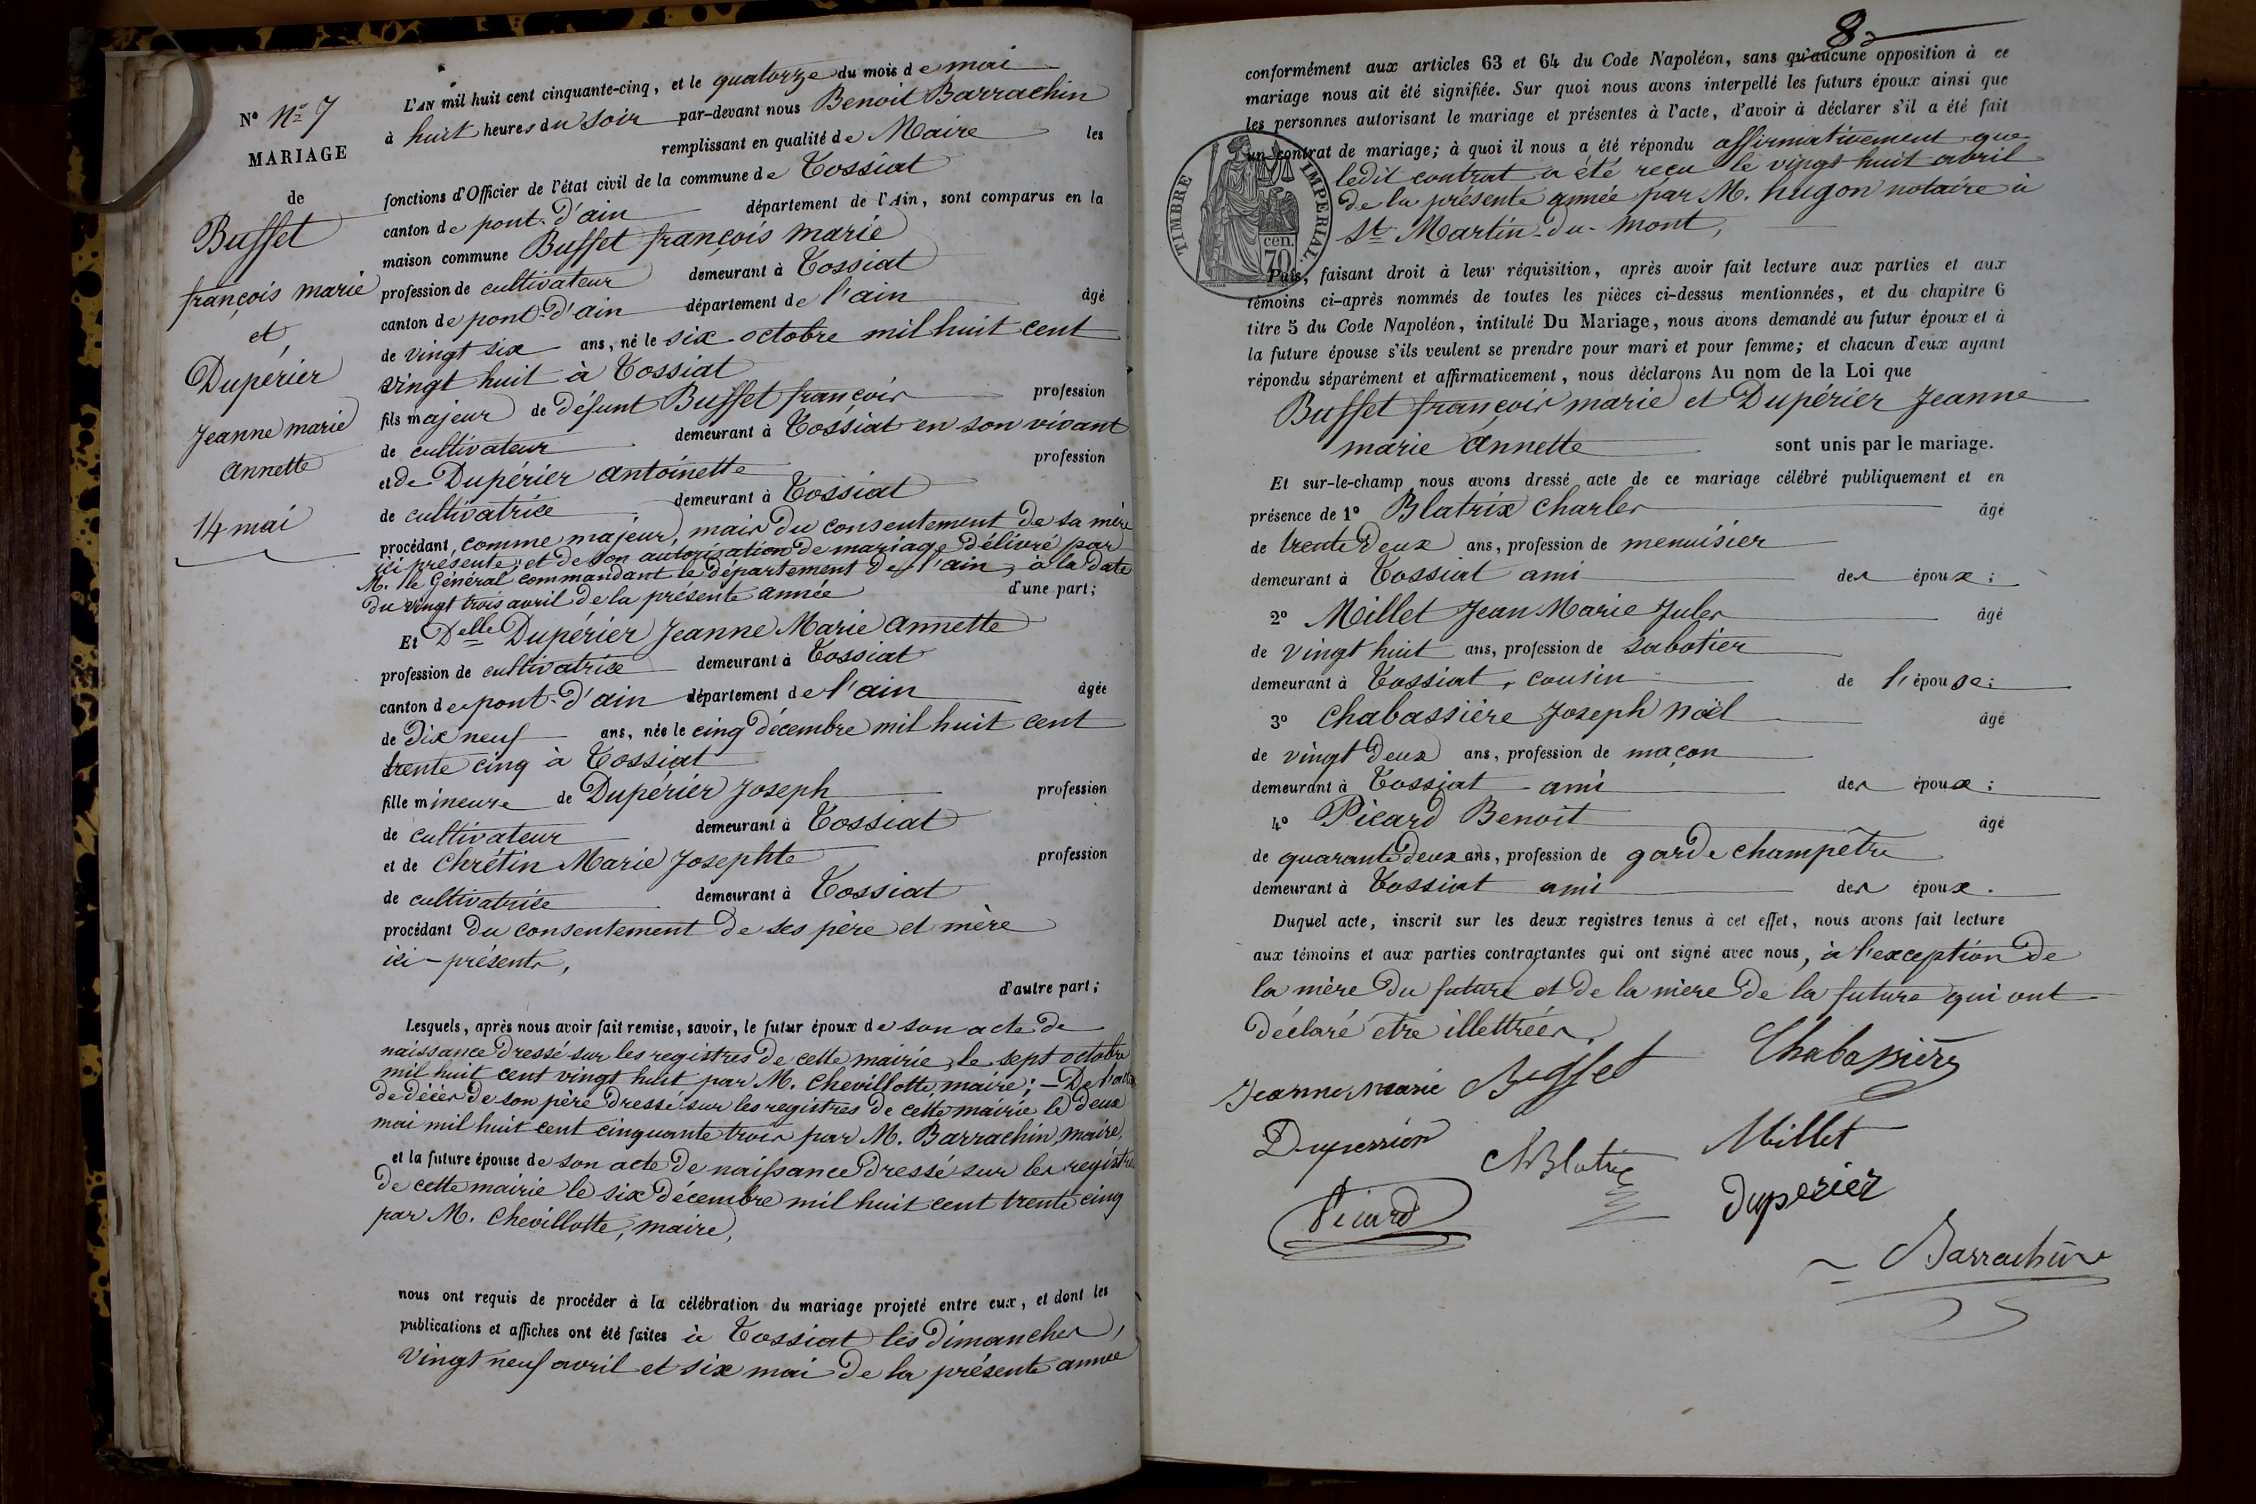 N° N° 7
MARIAGE
de
Buffet
françois marie
et
Dupérier
Jeanne marie
annette
14 mai
L'AN mil huit cent cinquante-cinq, et le quatorze du mois de mai
à huit heures du soir par-devant nous Benoit Barrachin
remplissant en qualité de Maire les
fonctions d'Officier de l'état civil de la commune de Tossiat
canton de pont-d'ain département de l'Ain, sont comparus en la
maison commune Buffet françois marie
profession de cultivateur demeurant à Tossiat
canton de pont-d'ain département de l'ain âgé
de vingt six ans, né le six octobre mil huit cent
vingt huit à Tossiat
fils majeur de défunt Buffet françois profession
de cultivateur demeurant à Tossiat en son vivant
et de Dupérier antoinette profession
de cultivatrice demeurant à Tossiat
procédant, comme majeur, mais du consentement de sa mère
ici présente, et de son autorisation de mariage délivré par
M. le Général commandant le département de l'ain, à la date
du vingt trois avril de la présente année d'une part;
Et Delle Dupérier Jeanne Marie annette
profession de cultivatrice demeurant à Tossiat
canton de pont-d'ain département de l'ain âgée
de dix neuf ans, née le cinq décembre mil huit cent
trente cinq à Tossiat
fille mineure de Dupérier Joseph profession
de cultivateur demeurant à Tossiat
et de Chrétin Marie Josephte profession
de cultivatrice demeurant à Tossiat
procédant du consentement de ses père et mère
ici-présents,
d'autre part;
Lesquels, après nous avoir fait remise, savoir, le futur époux de son acte de
naissance dressé sur les registres de cette mairie, le sept octobre
mil huit cent vingt huit par M. Chevillotte, maire; - De l'acte
de décès de son père dressé sur les registres de cette mairie le deux
mai mil huit cent cinquante trois par M. Barrachin, maire,
et la future épouse de son acte de naissance dressé sur les registres
de cette mairie le six décembre mil huit cent trente cinq
par M. Chevillotte, maire,
nous ont requis de procéder à la célébration du mariage projeté entre eux, et dont les
publications et affiches ont été faites à Tossiat les dimanches,
vingt neuf avril et six mai de la présente année
8
conformément aux articles 63 et 64 du Code Napoléon, sans qu'aucune opposition à ce
mariage nous ait été signifiée. Sur quoi nous avons interpellé les futurs époux ainsi que
les personnes autorisant le mariage et présentes à l'acte, d'avoir à déclarer s'il a été fait
un contrat de mariage; à quoi il nous a été répondu affirmativement que
ledit contrat a été reçu le vingt huit avril
de la présente année par M. hugon notaire à
St Martin-du-mont,
TIMBRE IMPERIAL.
70 cen.
Puis, faisant droit à leur réquisition, après avoir fait lecture aux parties et aux
témoins ci-après nommés de toutes les pièces ci-dessus mentionnées, et du chapitre 6
titre 5 du Code Napoléon, intitulé Du Mariage, nous avons demandé au futur époux et à
la future épouse s'ils veulent se prendre pour mari et pour femme; et chacun d'eux ayant
répondu séparément et affirmativement, nous déclarons Au nom de la Loi que
Buffet françois marie et Dupérier Jeanne
marie annette sont unis par le mariage.
Et sur-le-champ nous avons dressé acte de ce mariage célébré publiquement et en
présence de 1° Blatrix Charles âgé
de trente deux ans, profession de menuisier
demeurant à Tossiat ami des époux;
2° Millet Jean Marie Jules âgé
de vingt huit ans, profession de sabotier
demeurant à Tossiat, cousin de l'épouse;
3° Chabassière Joseph noël âgé
de vingt deux ans, profession de maçon
demeurant à Tossiat ami des époux;
4° Picard Benoit âgé
de quarante deux ans, profession de garde champêtre
demeurant à Tossiat ami des époux.
Duquel acte, inscrit sur les deux registres tenus à cet effet, nous avons fait lecture
aux témoins et aux parties contractantes qui ont signé avec nous, à l'exception de
la mère du future et de la mère de la future qui ont
déclaré être illettrées.
Jeanne marie Buffet Chabassière
Duperrier ChBlatrix Millet
Picard duperier
Barrachin